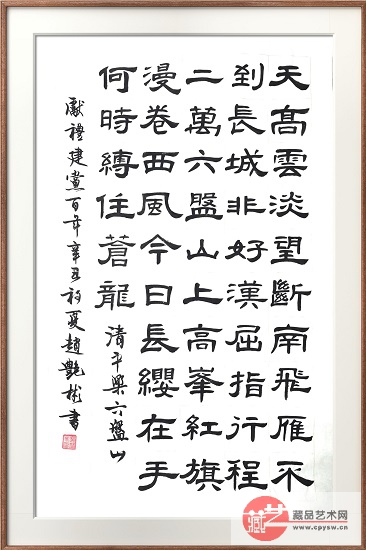 天髙雲淡望斷南飛雁不
到長城非好漢屈指行程
二萬六盤山上高峯紅旗
漫卷西風今日長纓在手
何時縛住蒼龍
清平樂六盤山
獻禮建黨百年辛丑初夏趙艷書
藏品艺术网
www.cpysw.cn